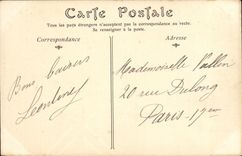 Carte Postale
Tous les pays étrangers n'acceptent pas la correspondance au recto.
Se renseigner à la poste.
Correspondance
Adresse
Bons baisers
Mademoiselle Vallon
20 rue Dulong
Paris. 17em